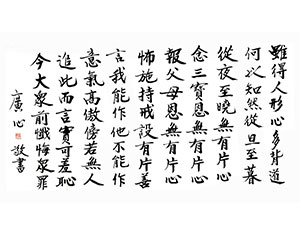 雖得人形心多背道
何以知然從旦至暮
從夜至曉無有片心
念三寶恩無有片心
報父母恩無有片心
怖施持戒設有片善
言我能作他不能作
意氣高傲傍若無人
追此而言實可羞恥
今大眾前懺悔眾罪
廣心 敬書